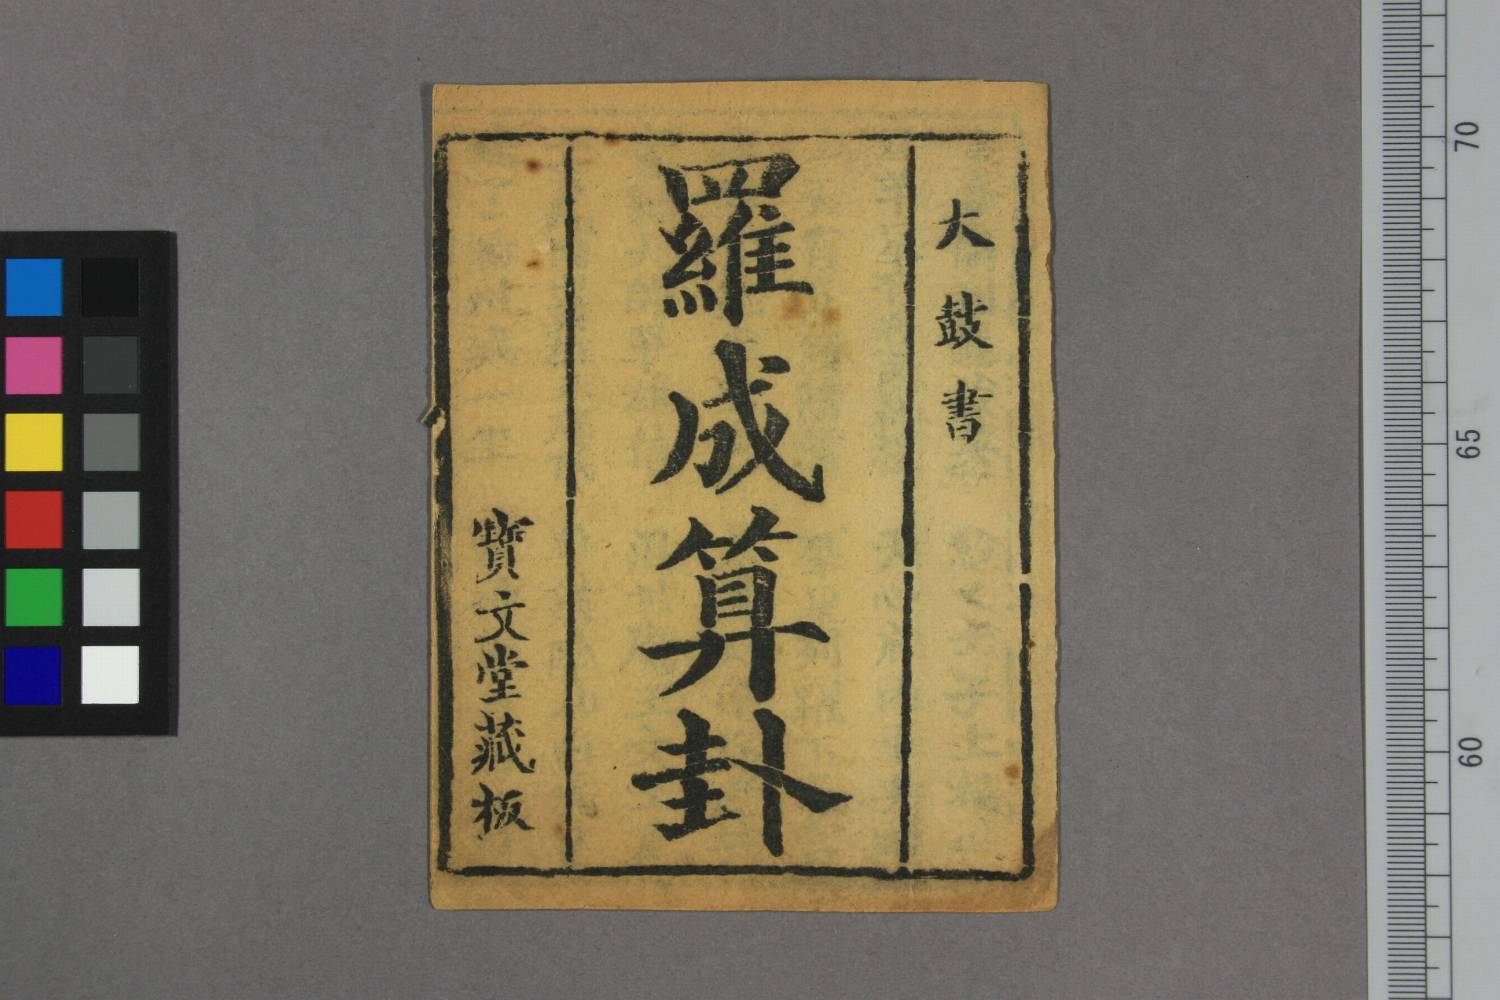 大鼓書
羅成算卦
寳文堂藏板
70
65
60